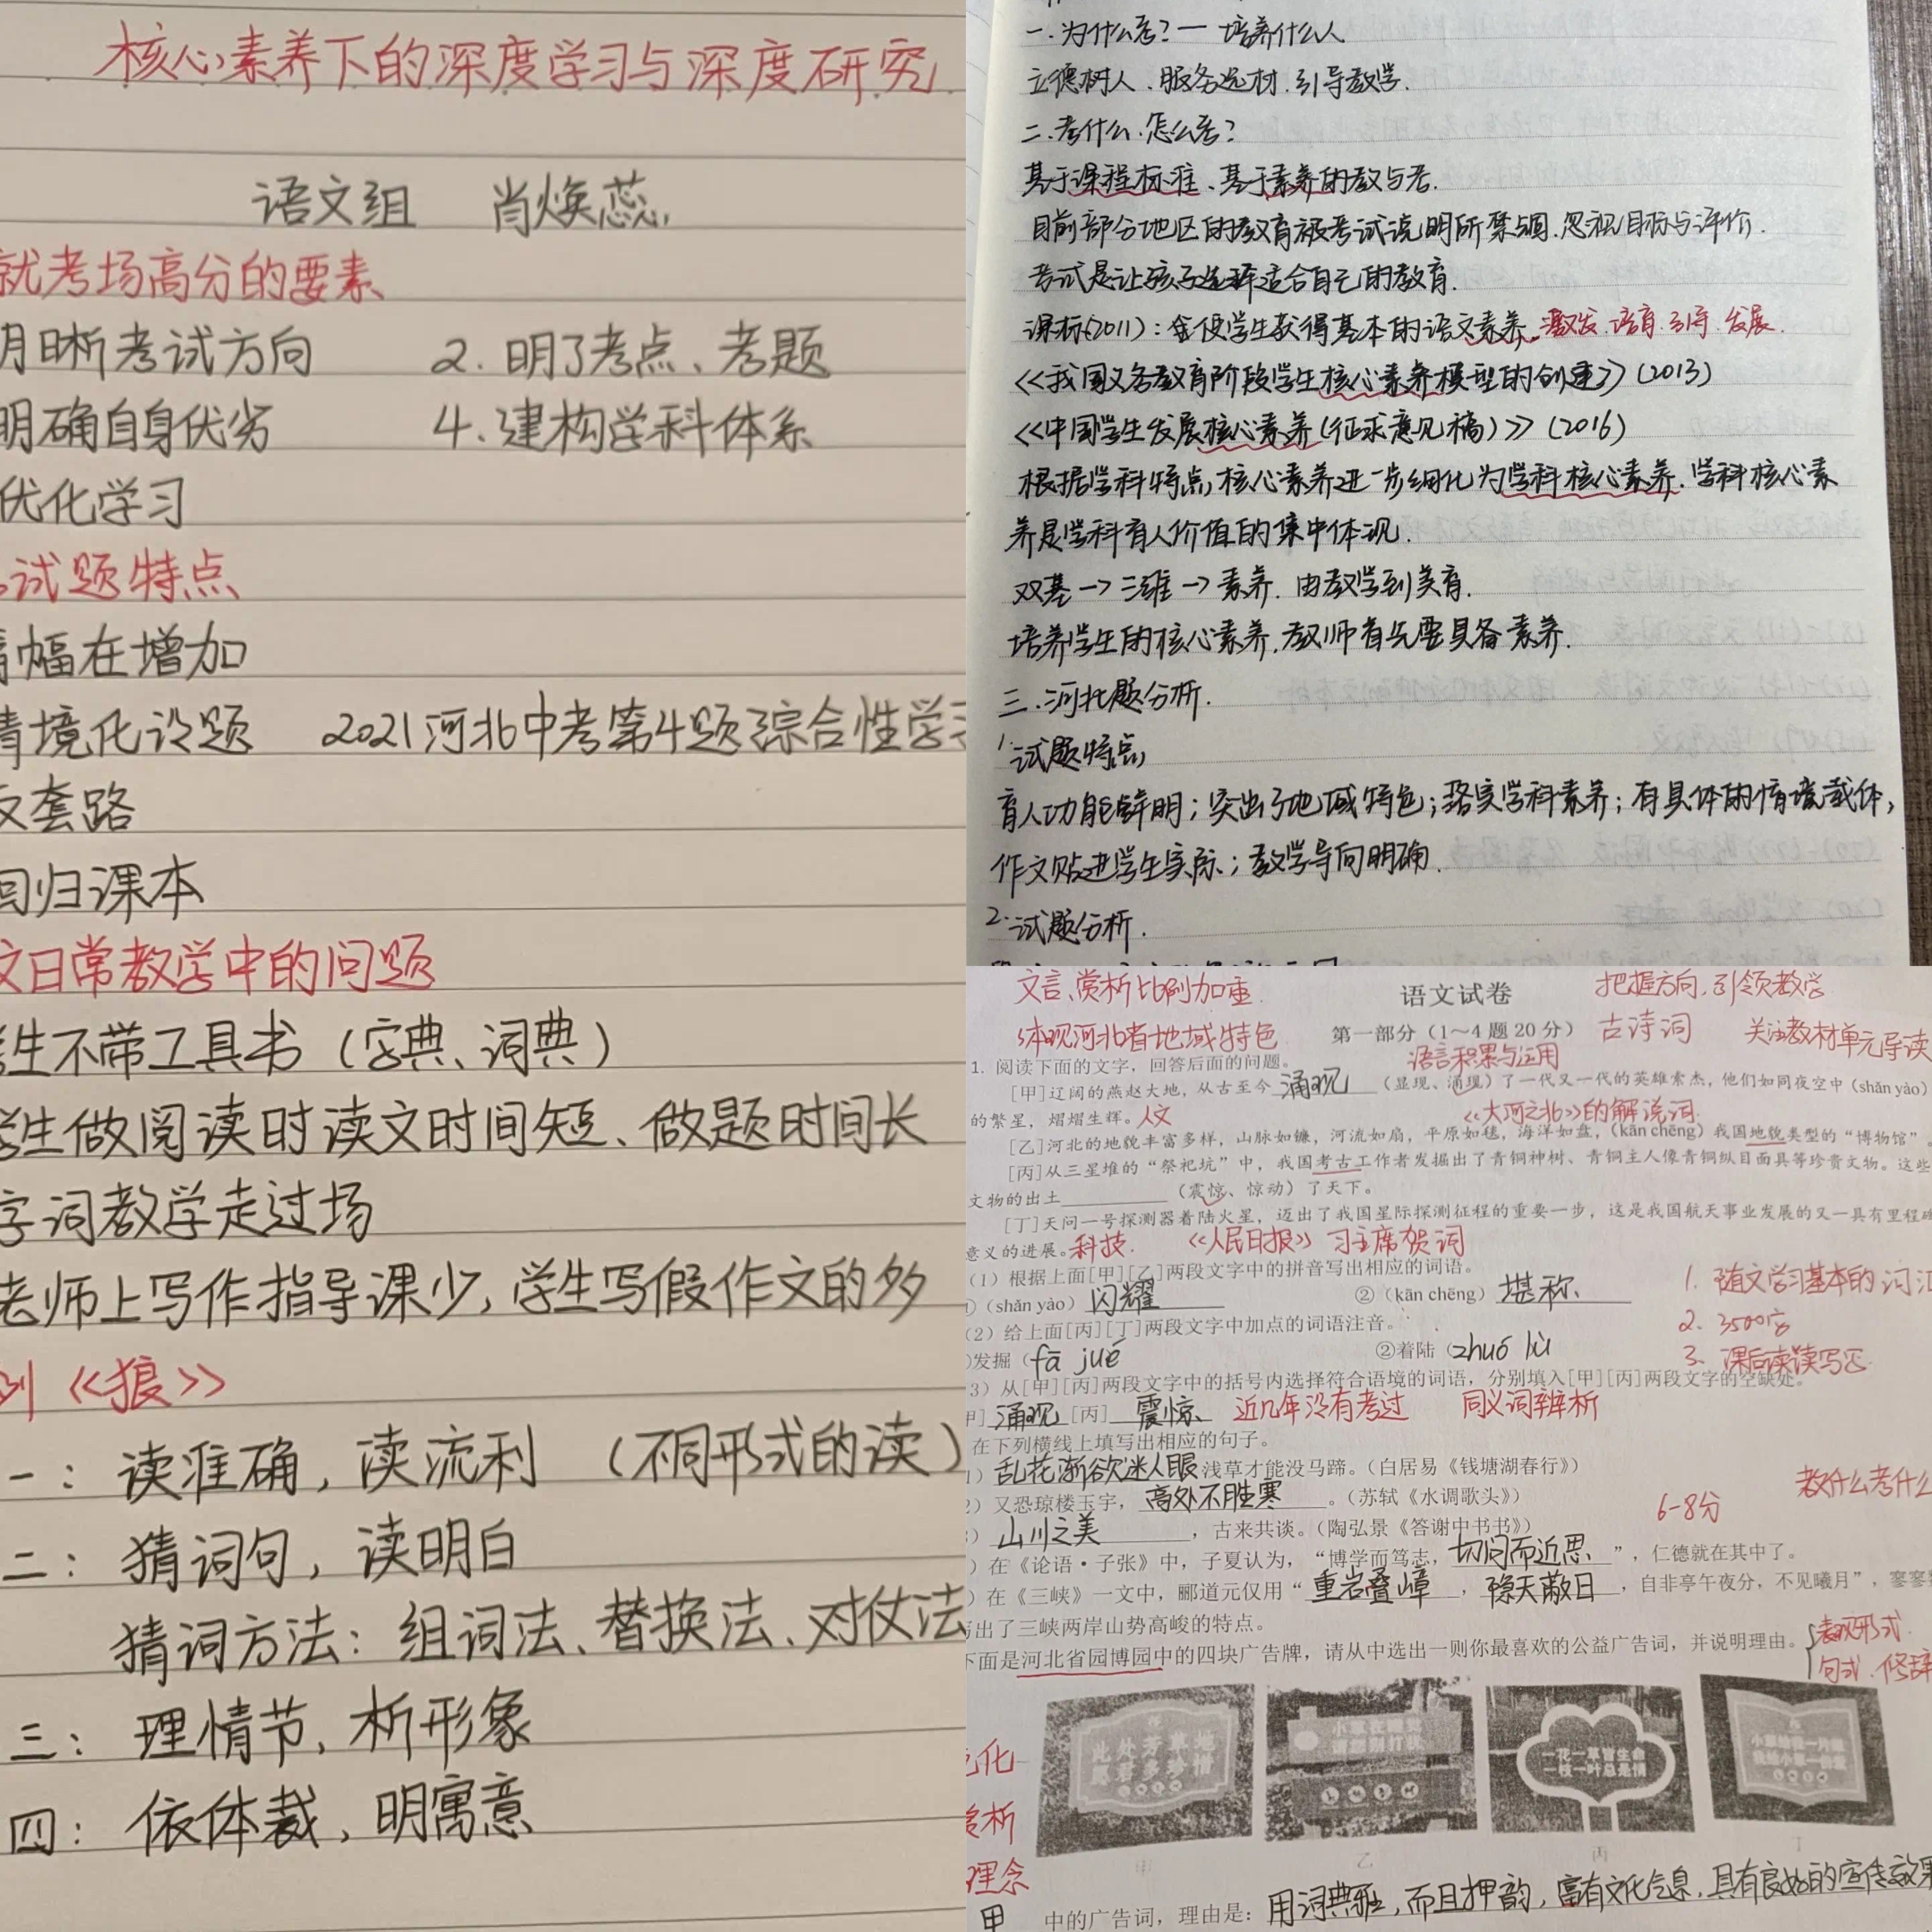 核心素养下的深度学习与深度研究
语文组 肖焕蕊
就考场高分的要素
明晰考试方向 2. 明了考点、考题
明确自身优劣 4. 建构学科体系
优化学习
试题特点
幅在增加
情境化设题 2021河北中考第4题综合性学习
反套路
回归课本
文日常教学中的问题
学生不带工具书（字典、词典）
学生做阅读时读文时间短、做题时间长
字词教学走过场
老师上写作指导课少，学生写假作文的多
例《狼》
一：读准确，读流利（不同形式的读）
二：猜词句，读明白
猜词方法：组词法、替换法、对仗法
三：理情节，析形象
四：依体裁，明寓意
一.为什么考？— 培养什么人
立德树人.服务选材.引导教学.
二.考什么.怎么考？
基于课程标准、基于素养的教与考.
目前部分地区的教育被考试说明所禁锢.忽视目标与评价.
考试是让孩子选择适合自己的教育.
课标(2011)：使学生获得基本的语文素养.激发.培育.引导.发展.
《我国义务教育阶段学生核心素养模型的创建》(2013)
《中国学生发展核心素养(征求意见稿)》(2016)
根据学科特点,核心素养进一步细化为学科核心素养.学科核心素
养是学科育人价值的集中体现.
双基→三维→素养.由教学到美育.
培养学生的核心素养.教师首先要具备素养.
三.河北题分析.
1.试题特点
育人功能鲜明；突出了地域特色；落实学科素养；有具体的情境载体；
作文贴近学生实际；教学导向明确.
2.试题分析.
文言、赏析比例加重. 语文试卷 把握方向,引领教学
体现河北省地域特色 第一部分（1～4题20分） 古诗词 关注教材单元导读
1. 阅读下面的文字，回答后面的问题。 语言积累与运用
[甲]辽阔的燕赵大地，从古至今 涌现 （显现、涌现）了一代又一代的英雄豪杰，他们如同夜空中（shǎn yào）
的繁星，熠熠生辉。人文 《大河之北》的解说词.
[乙]河北的地貌丰富多样，山脉如镰，河流如扇，平原如毯，海洋如盘，（kān chēng）我国地貌类型的“博物馆”。
[丙]从三星堆的“祭祀坑”中，我国考古工作者发掘出了青铜神树、青铜主人像青铜纵目面具等珍贵文物。这些
文物的出土____（震惊、惊动）了天下。
[丁]天问一号探测器着陆火星，迈出了我国星际探测征程的重要一步，这是我国航天事业发展的又一具有里程碑
意义的进展。科技. 《人民日报》 习主席贺词
（1）根据上面[甲][乙]两段文字中的拼音写出相应的词语。
①（shǎn yào） 闪耀 ②（kān chēng） 堪称 1. 随文学习基本的词汇
（2）给上面[丙][丁]两段文字中加点的词语注音。 2. 3500字
发掘（fā jué ②着陆（zhuó lù 3. 课后读读写写
3）从[甲][丙]两段文字中的括号内选择符合语境的词语，分别填入[甲][丙]两段文字的空缺处。
甲] 涌现 [丙] 震惊 近几年没有考过 同义词辨析
在下列横线上填写出相应的句子。
1）乱花渐欲迷人眼 浅草才能没马蹄。（白居易《钱塘湖春行》）
2）又恐琼楼玉宇， 高处不胜寒 。（苏轼《水调歌头》） 6-8分 教什么考什么
3） 山川之美 ，古来共谈。（陶弘景《答谢中书书》）
）在《论语·子张》中，子夏认为，“博学而笃志， 切问而近思 ”，仁德就在其中了。
）在《三峡》一文中，郦道元仅用“ 重岩叠嶂 ， 隐天蔽日 ，自非亭午夜分，不见曦月”，寥寥
写出了三峡两岸山势高峻的特点。
下面是河北省园博园中的四块广告牌，请从中选出一则你最喜欢的公益广告词，并说明理由。 表现形式.
句式.修辞
此处芳草地
愿君多珍惜
小草在睡觉
请您别打扰
一花一草皆生命
一枝一叶总是情
甲 乙 丙 丁
化
赏析
理念
甲 中的广告词，理由是： 用词典雅，而且押韵，富有文化气息，具有良好的宣传效果